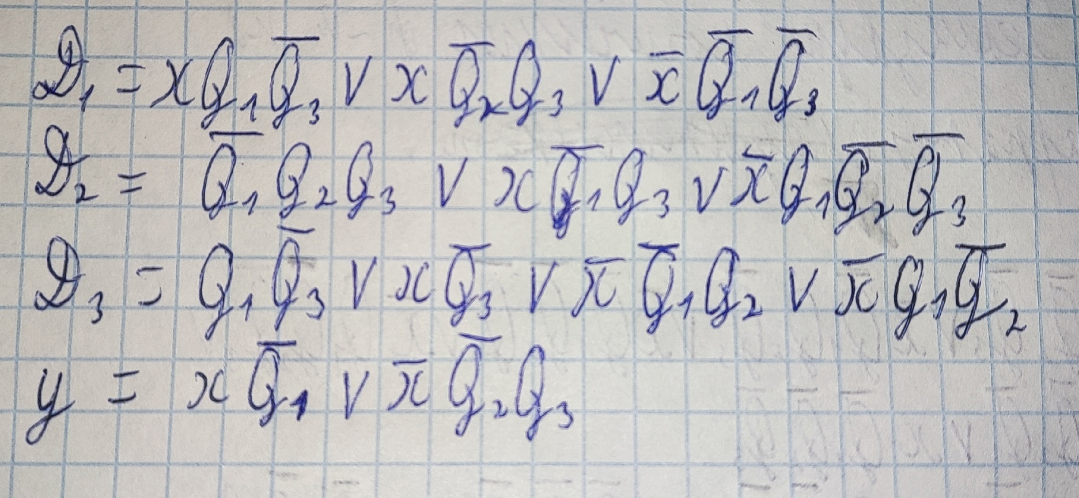 D₁ = xQ₁Q̅₃ ∨ xQ̅₂Q₃ ∨ x̅Q̅₁Q̅₃
D₂ = Q̅₁Q₂Q₃ ∨ xQ̅₁Q₃ ∨ x̅Q₁Q̅₂Q̅₃
D₃ = Q₁Q̅₃ ∨ xQ̅₃ ∨ x̅Q̅₁Q₂ ∨ x̅Q₁Q̅₂
y = xQ̅₁ ∨ x̅Q̅₂Q₃